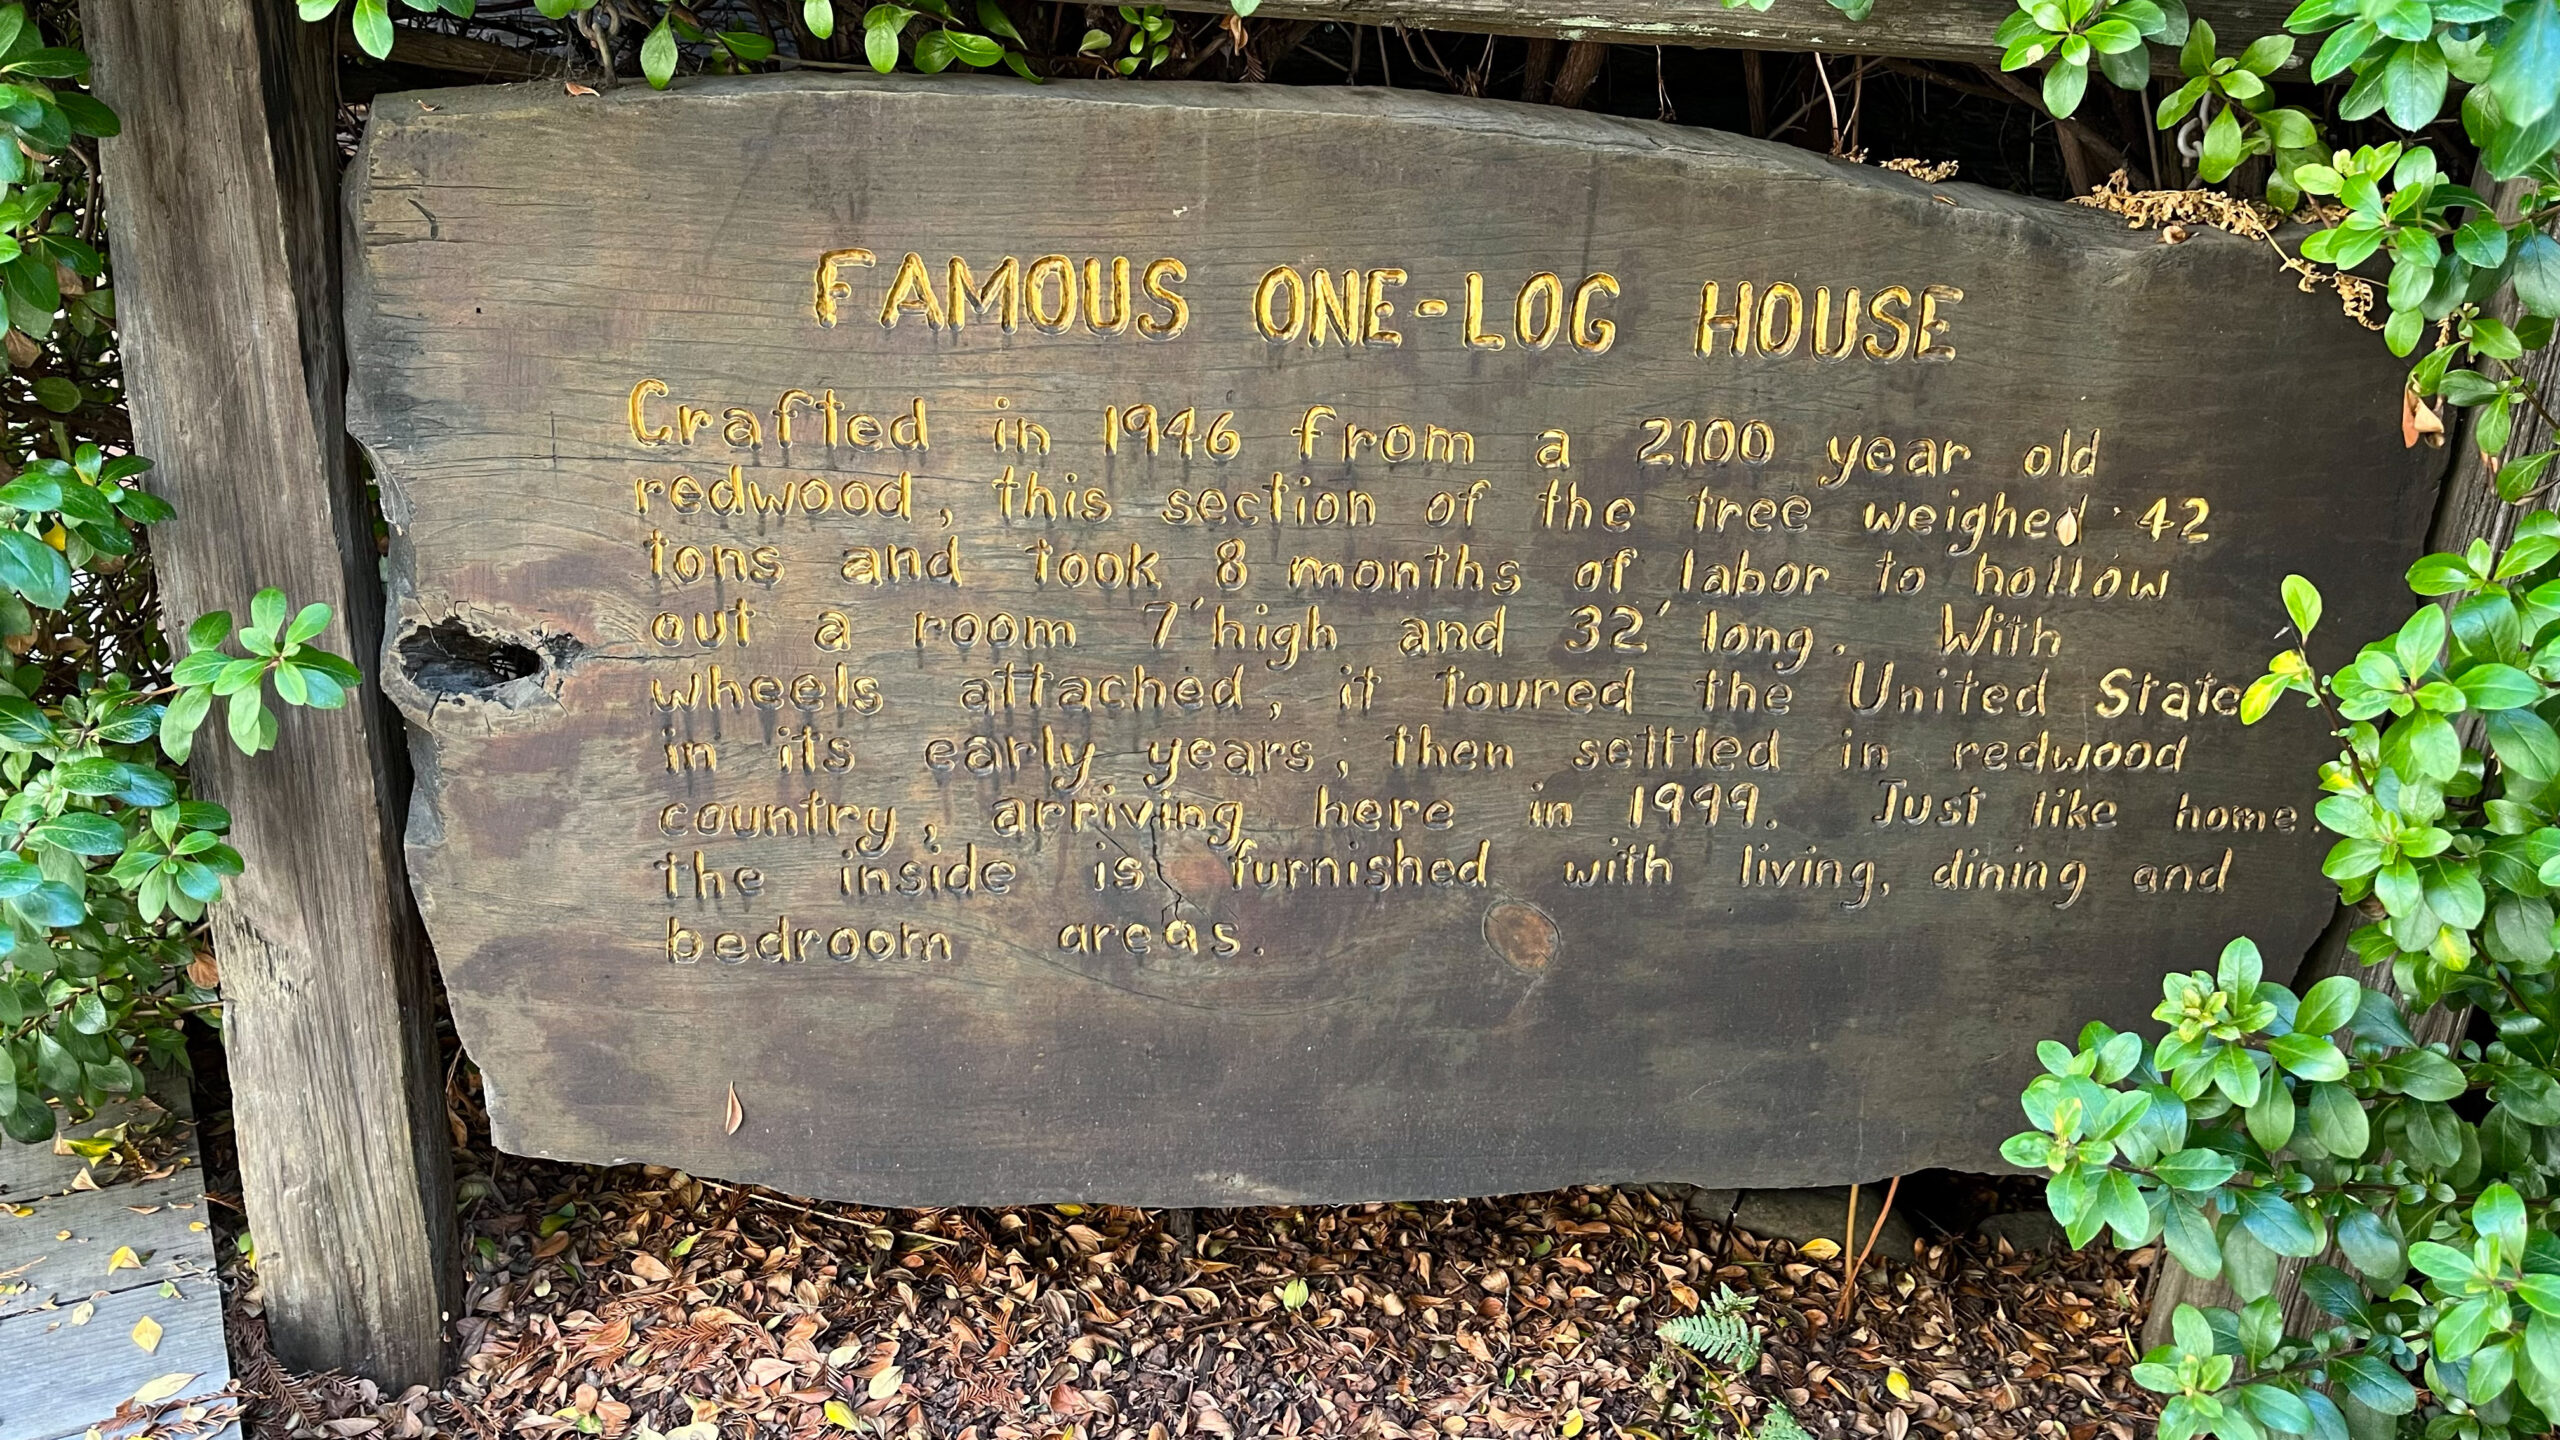 FAMOUS ONE-LOG HOUSE
Crafted in 1946 from a 2100 year old
redwood, this section of the tree weighed 42
tons and took 8 months of labor to hollow
out a room 7' high and 32' long. With
wheels attached, it toured the United State
in its early years, then settled in redwood
country, arriving here in 1999. Just like home.
the inside is furnished with living, dining and
bedroom areas.